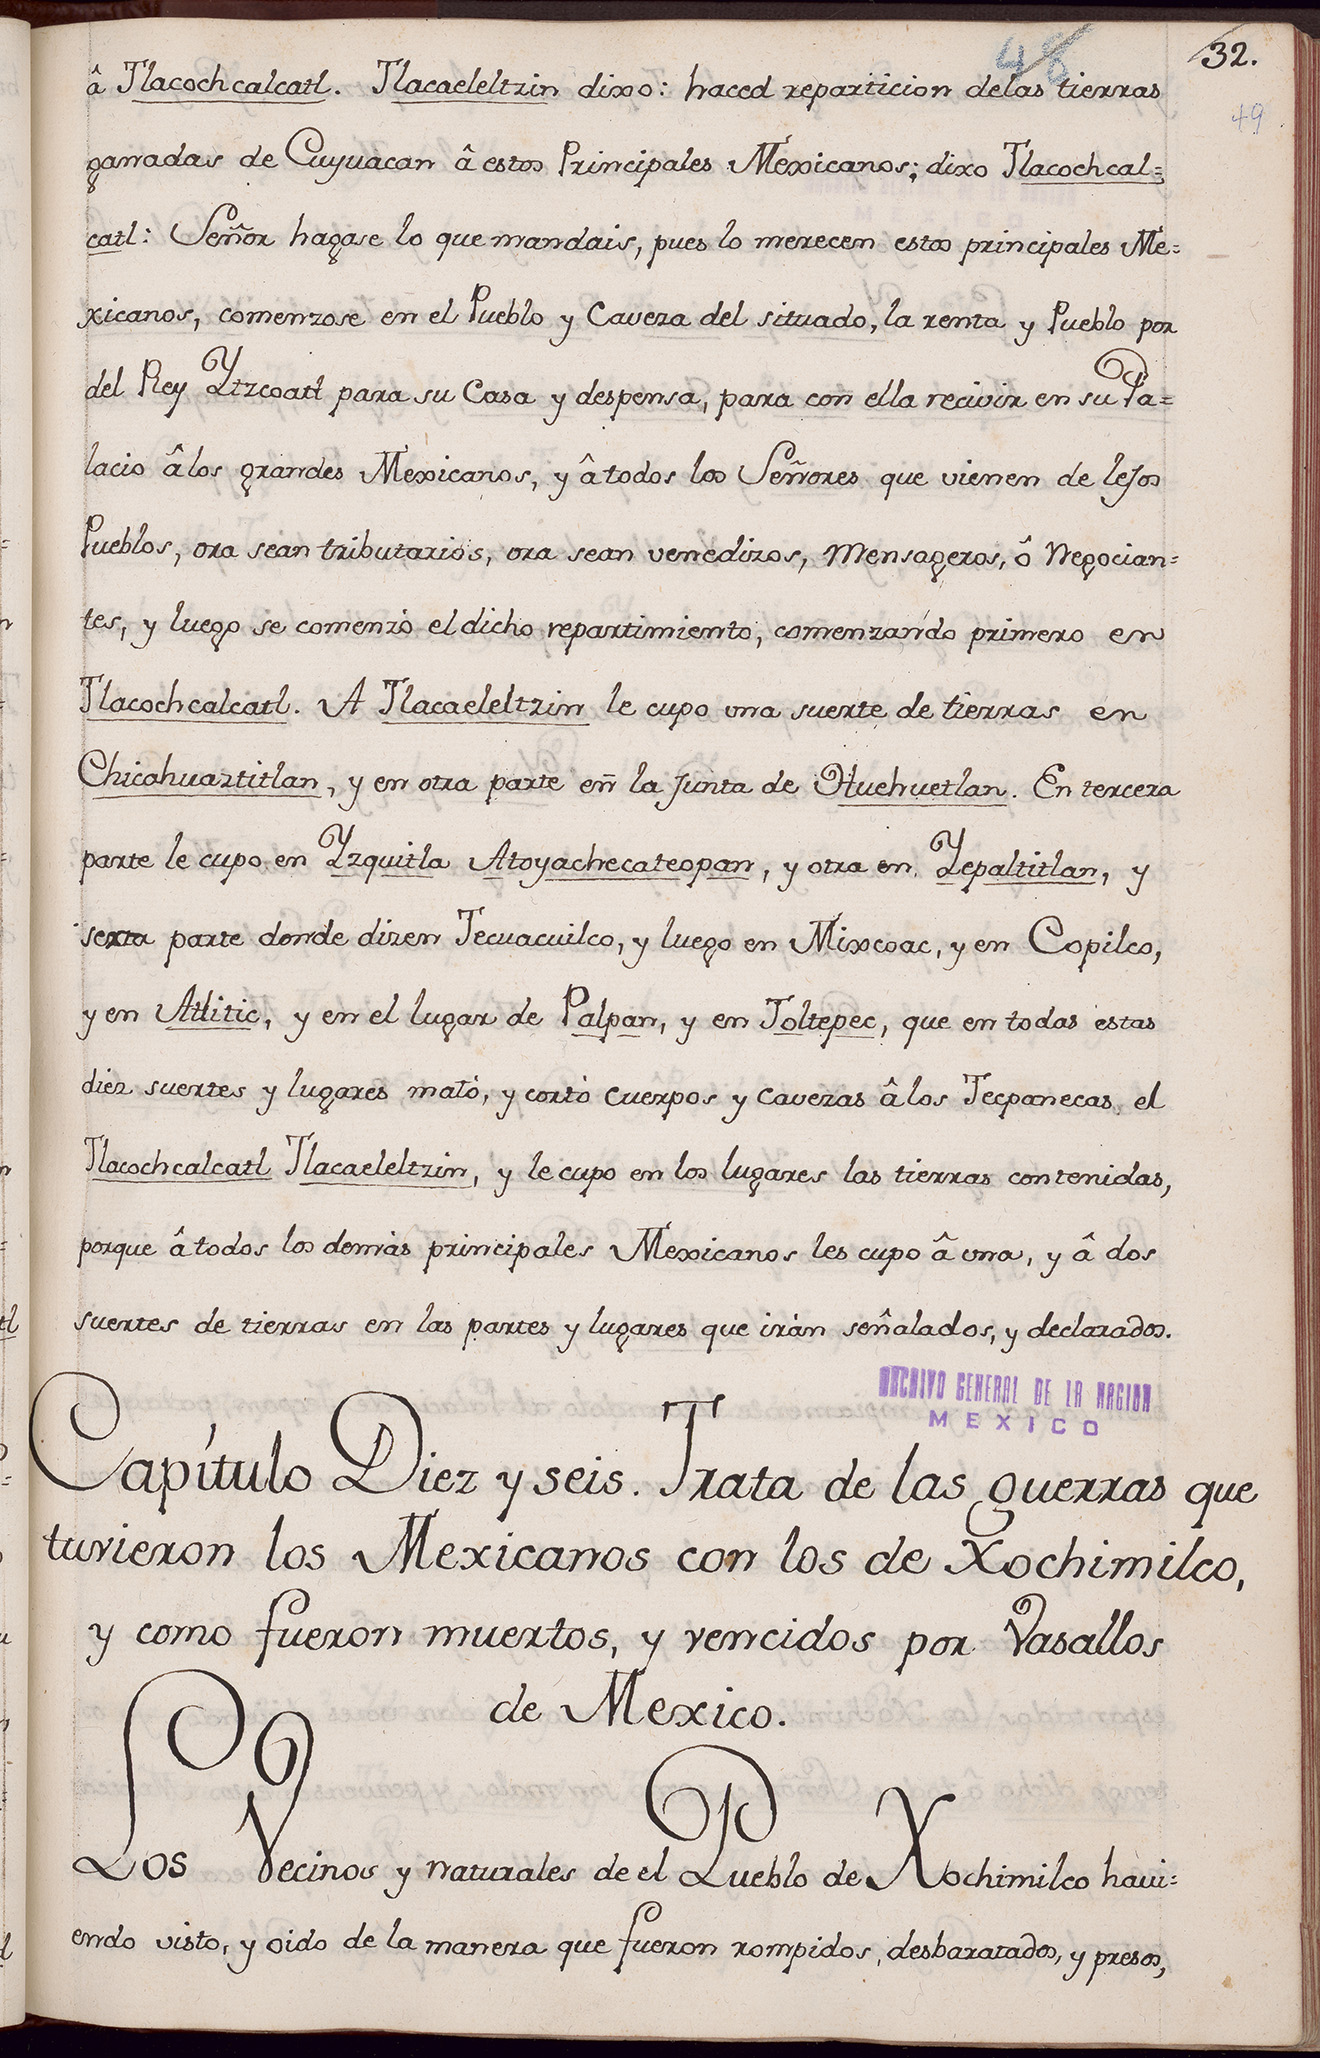 48
32.
49
â Tlacochcalcatl. Tlacaeleltzin dixo: haced reparticion delas tierras
ganadas de Cuyuacan â estos Principales Mexicanos; dixo Tlacochcal=
catl: Señor hagase lo que mandais, pues lo merecen estos principales Me=
xicanos, comenzose en el Pueblo y Caveza del situado, la renta y Pueblo por
del Rey Ytzcoatl para su Casa y despensa, para con ella recivir en su Pa=
lacio â los grandes Mexicanos, y â todos los Señores que vienen de lejos
Pueblos, ora sean tributarios, ora sean venedizos, Mensageros, ô Negocian=
tes, y luego se comenzó el dicho repartimiento, comenzando primero en
Tlacochcalcatl. A Tlacaeleltzin le cupo una suerte de tierras en
Chicahuaztitlan, y en otra parte en la Junta de Huehuetlan. En tercera
parte le cupo en Yzquitla Atoyachecateopan, y otra en Tepaltitlan, y
sexta parte donde dizen Tecuacuilco, y luego en Mixcoac, y en Copilco,
y en Atlitic, y en el lugar de Palpan, y en Toltepec, que en todas estas
diez suertes y lugares mató, y cortó cuerpos y cavezas â los Tecpanecas el
Tlacochcalcatl Tlacaeleltzin, y le cupo en los lugares las tierras contenidas,
porque â todos los demàs principales Mexicanos les cupo â una, y â dos
suertes de tierras en las partes y lugares que iràn señalados, y declarados.
ARCHIVO GENERAL DE LA NACION
MEXICO
Capítulo Diez y seis. Trata de las guerras que
tuvieron los Mexicanos con los de Xochimilco,
y como fueron muertos, y vencidos por Vasallos
de Mexico.
Los Vecinos y naturales de el Pueblo de Xochimilco havi=
endo visto, y oido de la manera que fueron rompidos, desbaratados, y presos,